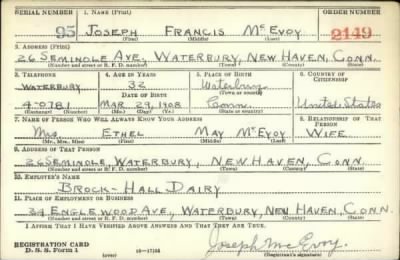 SERIAL NUMBER 1. NAME (Print) ORDER NUMBER
95 JOSEPH FRANCIS McEVOY 2149
(First) (Middle) (Last)
2. ADDRESS (Print)
26 SEMINOLE AVE., WATERBURY, NEW HAVEN, CONN.
(Number and street or R. F. D. number) (Town) (County) (State)
3. TELEPHONE 4. AGE IN YEARS 5. PLACE OF BIRTH 6. COUNTRY OF CITIZENSHIP
WATERBURY 32 Waterbury
DATE OF BIRTH (Town or county)
4-0781 MAR. 29, 1908 Conn. United States
(Exchange) (Number) (Mo.) (Day) (Yr.) (State or country)
7. NAME OF PERSON WHO WILL ALWAYS KNOW YOUR ADDRESS 8. RELATIONSHIP OF THAT PERSON
Mrs. ETHEL MAY McEVOY WIFE
(Mr., Mrs., Miss) (First) (Middle) (Last)
9. ADDRESS OF THAT PERSON
26 SEMINOLE WATERBURY, NEW HAVEN, CONN.
(Number and street or R. F. D. number) (Town) (County) (State)
10. EMPLOYER'S NAME
BROCK-HALL DAIRY
11. PLACE OF EMPLOYMENT OR BUSINESS
34 ENGLEWOOD AVE., WATERBURY, NEW HAVEN, CONN.
(Number and street or R. F. D. number) (Town) (County) (State)
I AFFIRM THAT I HAVE VERIFIED ABOVE ANSWERS AND THAT THEY ARE TRUE.
REGISTRATION CARD
D. S. S. Form 1 (over) 16—17105 Joseph McEvoy
(Registrant's signature)